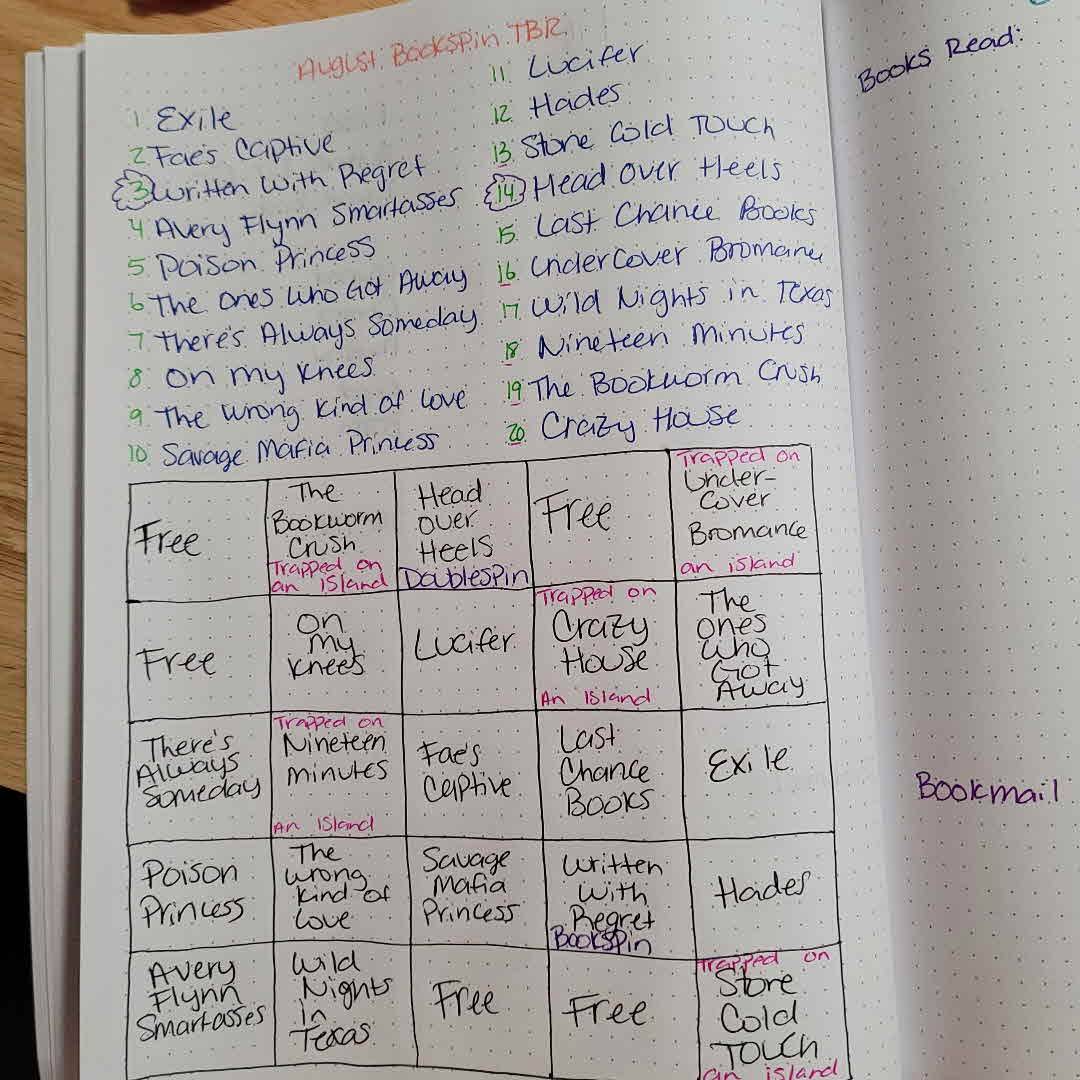 August Bookspin TBR
1 Exile
2 Fae's Captive
3 Written With Regret
4 Avery Flynn Smartasses
5 Poison Princess
6 The Ones Who Got Away
7 There's Always Someday
8 On my Knees
9 The Wrong Kind of Love
10 Savage Mafia Princess
11 Lucifer
12 Hades
13 Stone Cold Touch
14 Head Over Heels
15 Last Chance Books
16 Undercover Bromance
17 Wild Nights in Texas
18 Nineteen Minutes
19 The Bookworm Crush
20 Crazy House
Free
The
Bookworm
Crush
Trapped on
an island
Head
over
Heels
Doublespin
Free
Trapped on
Under-
Cover
Bromance
an island
Free
On
My
Knees
Lucifer
Trapped on
Crazy
House
An island
The
Ones
Who
Got
Away
There's
Always
Someday
Trapped on
Nineteen
minutes
An island
Fae's
Captive
Last
Chance
Books
Exile
Poison
Princess
The
Wrong
Kind of
Love
Savage
Mafia
Princess
Written
With
Regret
BookSpin
Hades
Avery
Flynn
Smartasses
Wild
Nights
in
Texas
Free
Free
Trapped on
Stone
Cold
Touch
an island
Books Read:
Bookmail